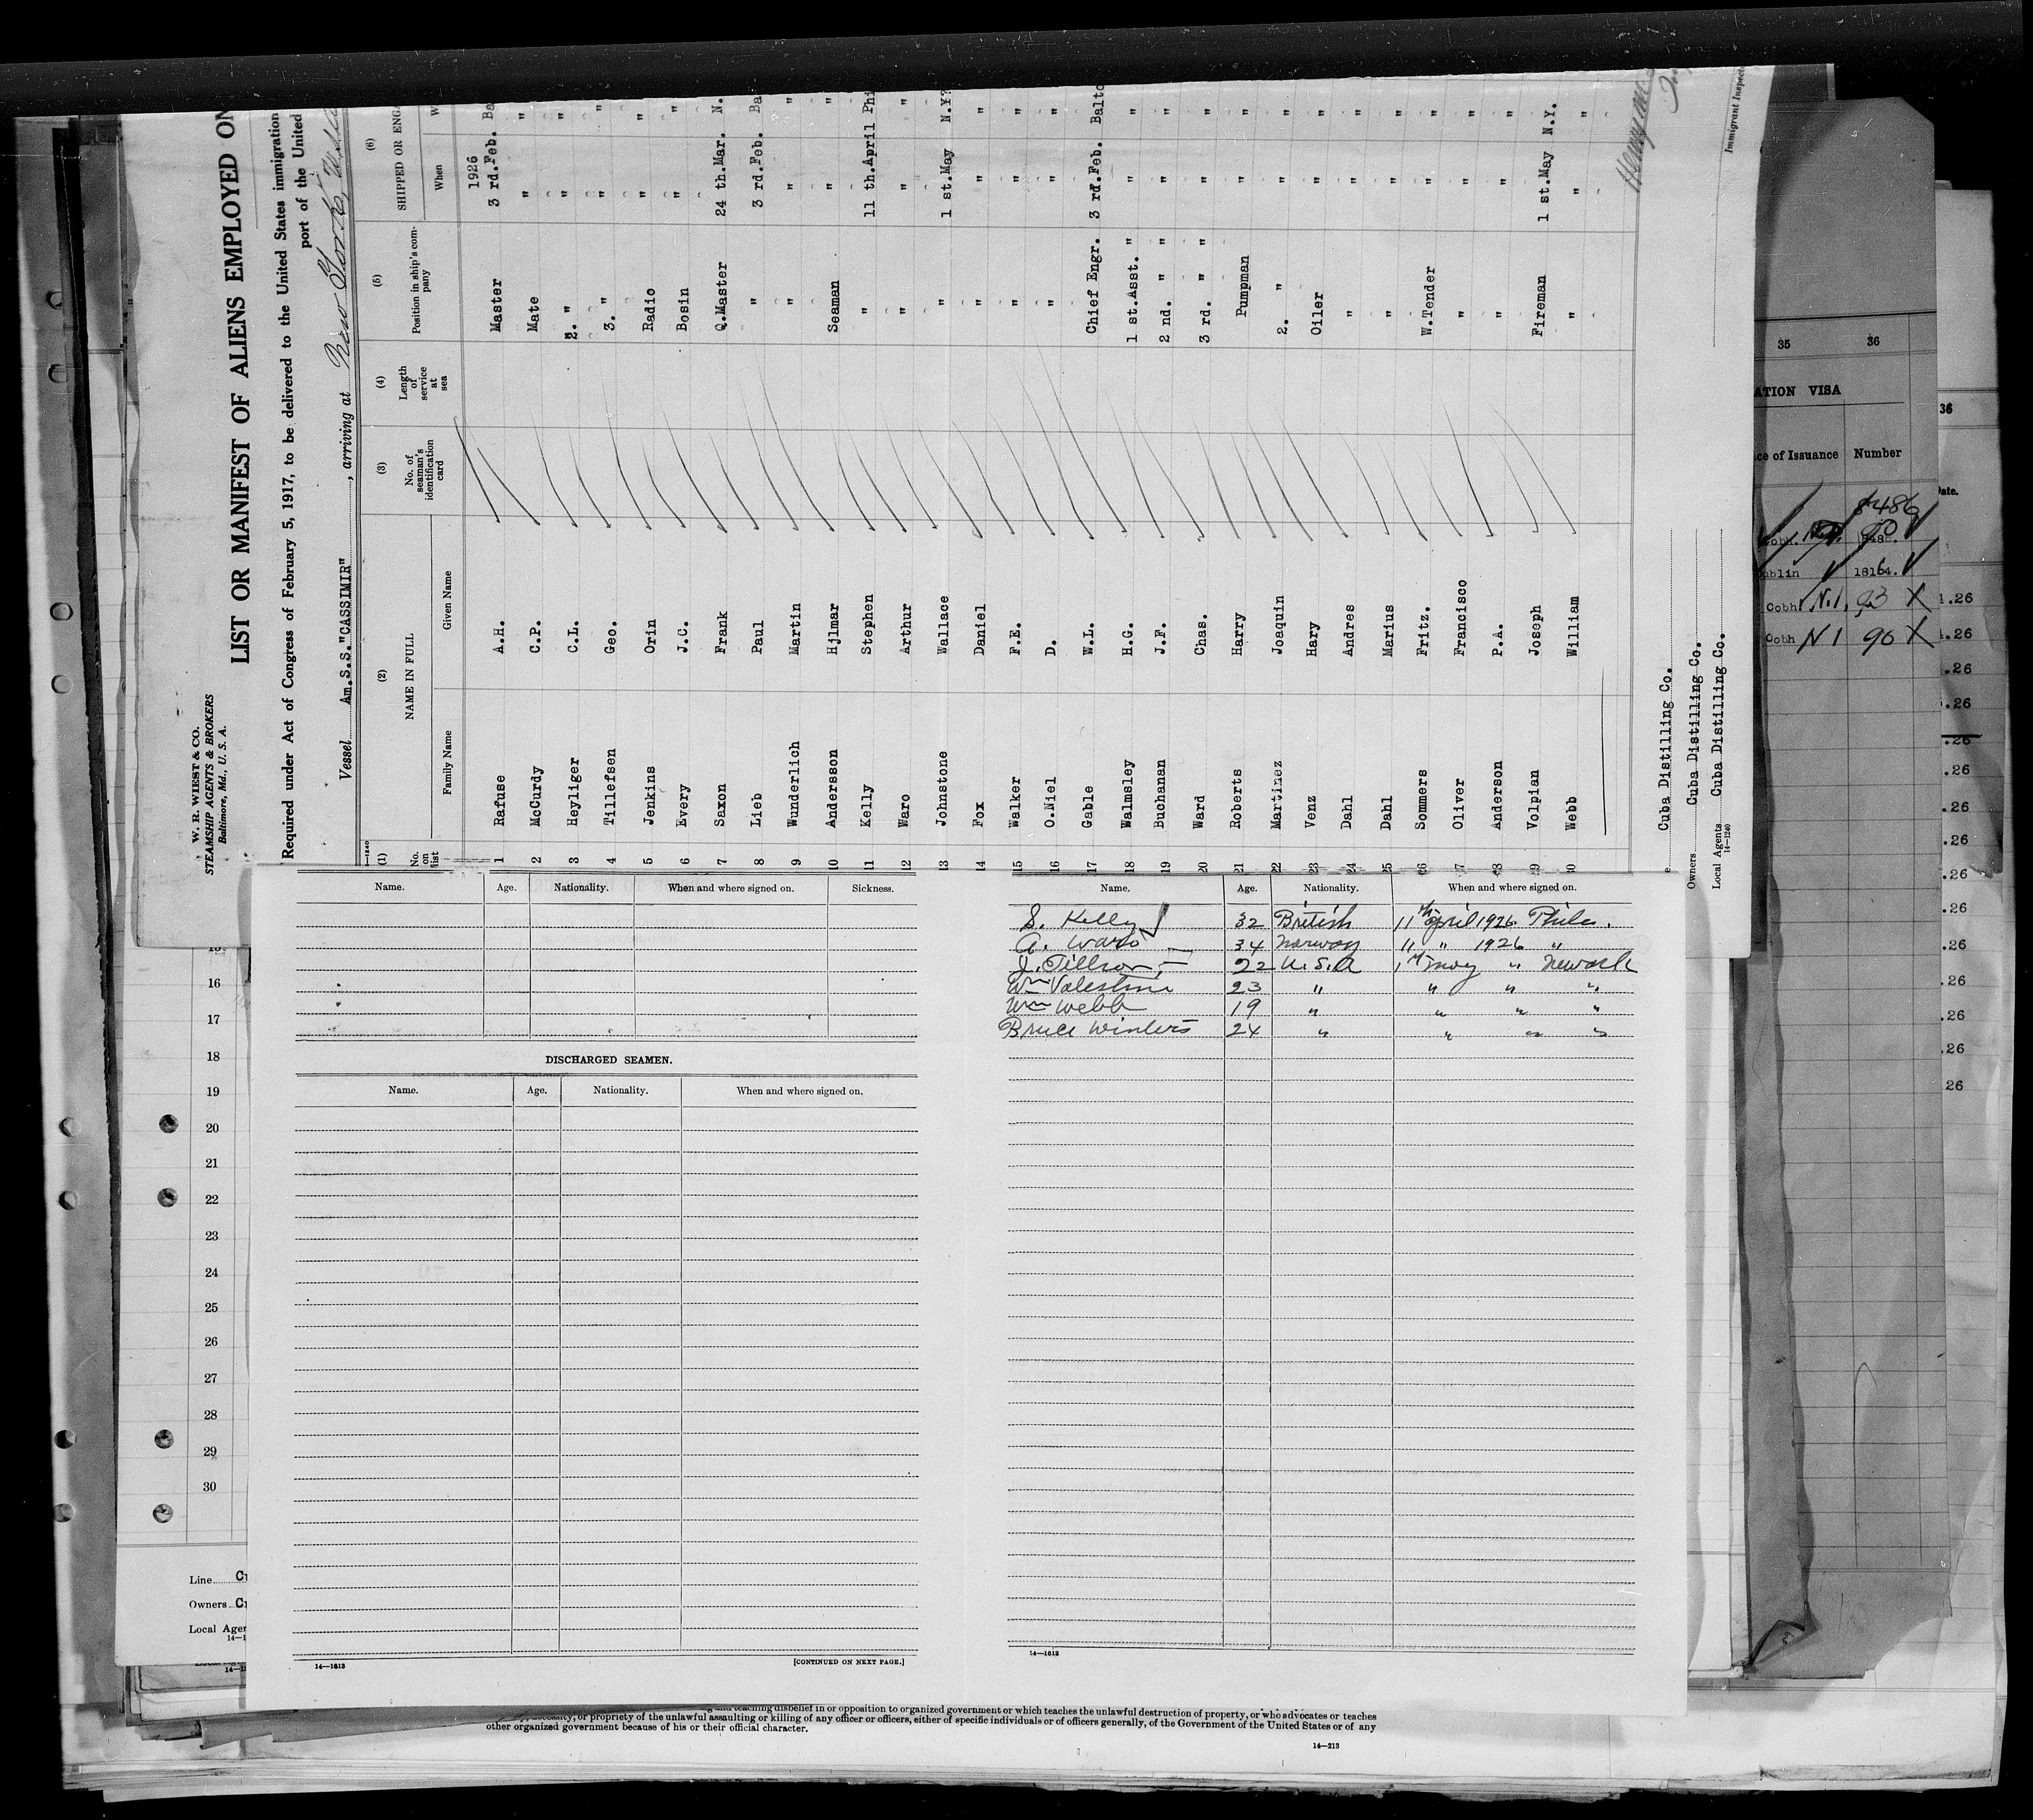 W. R. WIEST & CO.
STEAMSHIP AGENTS & BROKERS
Baltimore, Md., U. S. A.
LIST OR MANIFEST OF ALIENS EMPLOYED ON
Required under Act of Congress of February 5, 1917, to be delivered to the United States immigration
port of the United
Vessel Am.S.S."CASSIMIR", arriving at New York,
(1) (2) (3) (4) (5) (6)
No. on list NAME IN FULL No. of seaman's identification card Length of service at sea Position in ship's company SHIPPED OR ENG
Family Name Given Name When W
1926
1 Rafuse A.H. Master 3 rd.Feb. Ba
2 McCurdy C.P. Mate " "
3 Heyliger C.L. 2. " " "
4 Tillefsen Geo. 3. " " "
5 Jenkins Orin Radio " "
6 Every J.C. Bosin " "
7 Saxon Frank Q.Master 24 th.Mar. N.
8 Lieb Paul " 3 rd.Feb. Ba
9 Wunderlich Martin " " "
10 Andersson Hjlmar Seaman " "
11 Kelly Stephen " 11 th.April Phi
12 Waro Arthur " " "
13 Johnstone Wallace " 1 st.May N.Y?
14 Fox Daniel " " "
15 Walker F.E. " " "
16 O.Niel D. " " "
17 Gable W.L. Chief Engr. 3 rd.Feb. Balto
18 Walmsley H.G. 1 st.Asst. " " "
19 Buchanan J.F. 2 nd. " " " "
20 Ward Chas. 3 rd. " " " "
21 Roberts Harry Pumpman " "
22 Martinez Joaquin 2. " " "
23 Venz Hary Oiler " "
24 Dahl Andres " " "
25 Dahl Marius " " "
26 Sommers Fritz. W.Tender " "
27 Oliver Francisco " " "
28 Anderson P.A. " " "
29 Volpian Joseph Fireman 1 st.May N.Y.
30 Webb William " " "
Cuba Distilling Co.
Owners Cuba Distilling Co.
Local Agents Cuba Distilling Co.
14—1240
Immigrant Inspect
35 36
ATION VISA
ce of Issuance Number
8486
90
ublin 18164.
Cobh N.1, 93 X
Cobh N 1 90 X
36
Date.
1.26
1.26
.26
.26
.26
.26
.26
.26
.26
.26
.26
.26
.26
26
Name. Age. Nationality. When and where signed on. Sickness.
DISCHARGED SEAMEN.
Name. Age. Nationality. When and where signed on.
14—1613 [CONTINUED ON NEXT PAGE.]
Name. Age. Nationality. When and where signed on.
S. Kelly 32 British 11th April 1926 Phila.
A. Waro 34 Norway 11 " 1926 "
J. Tillson 22 U.S.A 1st May " Newark
Wm Valestine 23 " " " "
Wm Webb 19 " " " "
Bruce Winters 24 " " " "
14—1613
15
16
17
18
19
20
21
22
23
24
25
26
27
28
29
30
Line
Owners
Local Agen
teaching disbelief in or opposition to organized government or which teaches the unlawful destruction of property, or who advocates or teaches
or propriety of the unlawful assaulting or killing of any officer or officers, either of specific individuals or of officers generally, of the Government of the United States or of any
other organized government because of his or their official character.
14—213